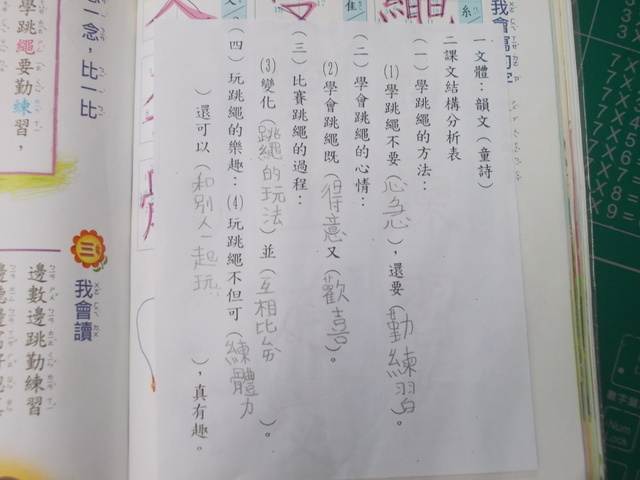 我會寫句子
一文體：韻文（童詩）
二課文結構分析表
（一）學跳繩的方法：
(1)學跳繩不要（心急），還要（勤練習）。
（二）學會跳繩的心情：
(2)學會跳繩既（得意）又（歡喜）。
（三）比賽跳繩的過程：
(3)變化（跳繩的玩法）並（互相比台）。
（四）玩跳繩的樂趣：(4)玩跳繩不但可（練體力
）還可以（和別人一起玩），真有趣。
念，比一比
學跳繩要勤練習，
三 我會讀
邊數邊跳勤練習
Num Lock